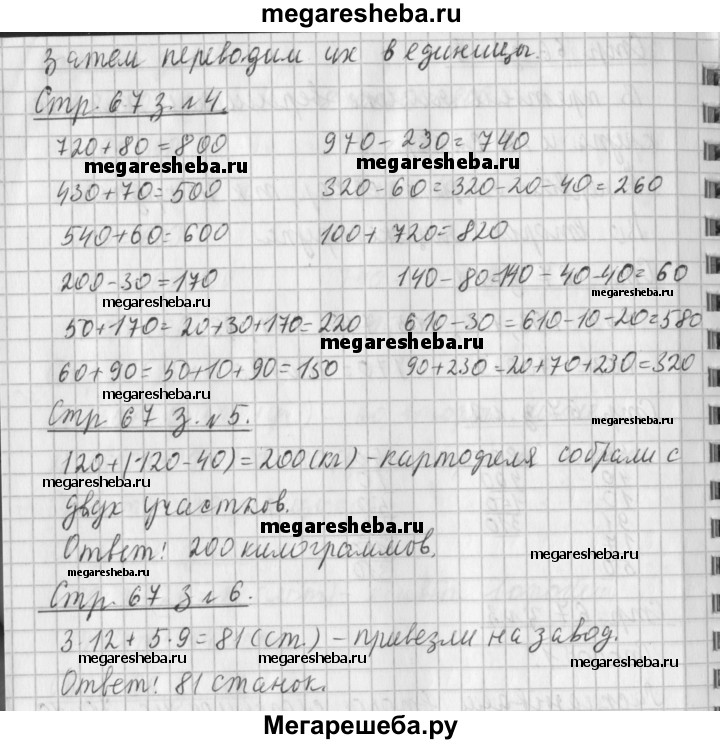 megaresheba.ru
затем переводим их в единицы.
Стр. 67 з. №4.
720+80=800 970-230=740
megaresheba.ru megaresheba.ru
430+70=500 320-60=320-20-40=260
540+60=600 100+720=820
200-30=170 140-80=140-40-40=60
megaresheba.ru megaresheba.ru
50+170=20+30+170=220 610-30=610-10-20=580
megaresheba.ru
60+90=50+10+90=150 90+230=20+70+230=320
Стр. 67 з. №5.
megaresheba.ru
120+(120-40)=200(кг) - картофеля собрали с
megaresheba.ru
двух участков.
megaresheba.ru
Ответ: 200 килограммов.
megaresheba.ru
megaresheba.ru
Стр. 67 з № 6.
3·12+5·9=81(ст.) - привезли на завод.
megaresheba.ru megaresheba.ru megaresheba.ru
Ответ: 81 станок.
Мегарешеба.ру